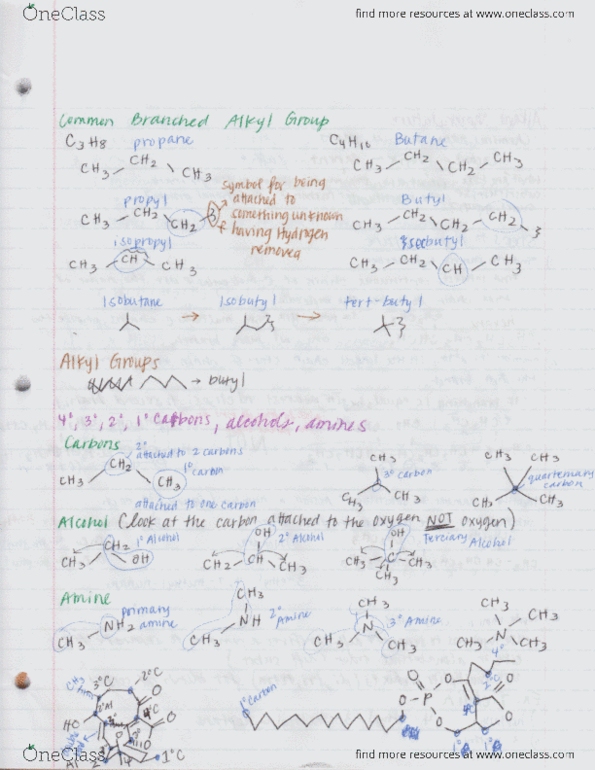 OneClass find more resources at www.oneclass.com
Common Branched Alkyl Group
C3H8 propane C4H10 Butane
CH3 CH2 CH3 CH3 CH2 CH2 CH3
symbol for being
attached to
something unknown
& having Hydrogen
removed
propyl Butyl
CH3 CH2 CH2 CH3 CH2 CH2 CH2
isopropyl secbutyl
CH3 CH CH3 CH3 CH2 CH CH3
Isobutane → Isobutyl → tert-butyl
Alkyl Groups
→ butyl
4°, 3°, 2°, 1° Carbons, alcohols, amines
Carbons
2° attached to 2 carbons
CH3 CH2 CH3 1° carbon
attached to one carbon
CH3 CH3 CH3 3° carbon
CH3 CH3 CH3 CH3 quarternary carbon
Alcohol (look at the carbon attached to the oxygen NOT oxygen)
CH3 CH2 OH 1° Alcohol
OH 2° Alcohol
CH CH3
OH Terciary Alcohol
CH3 C CH3
CH3
Amine
CH3 NH2 primary amine
CH3 NH CH3 2° Amine
CH3 CH3 N CH3 3° Amine
CH3 CH3 N CH3 CH3
4°
3°C 2°C
HO
1°C
1° Carbon
O P O O
OneClass find more resources at www.oneclass.com